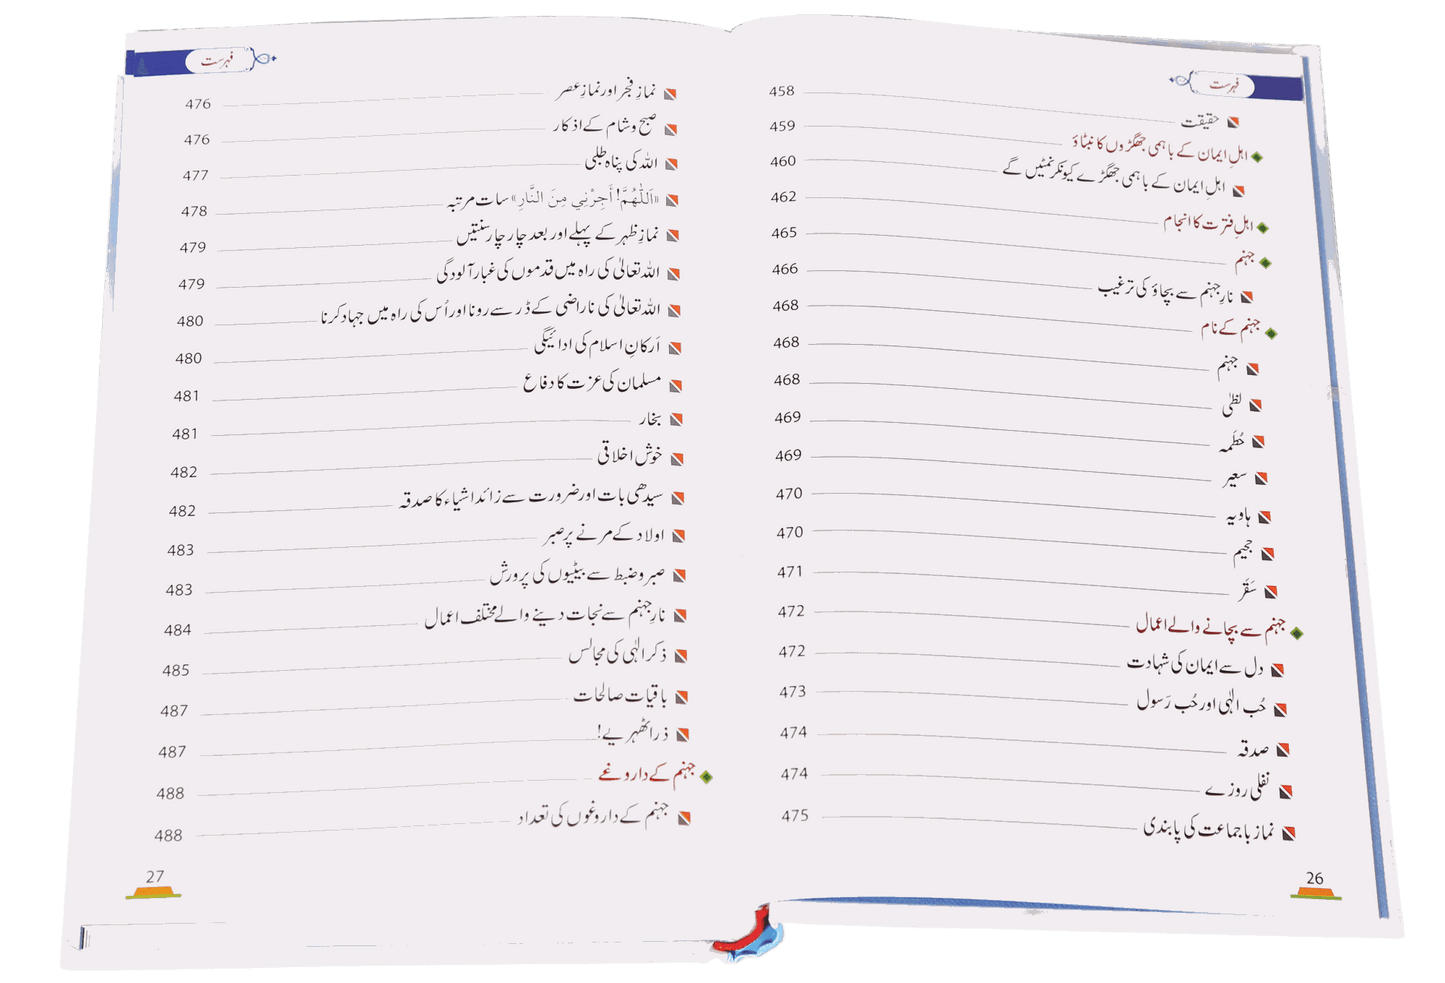 فہرست
حقیقت 458
اہلِ ایمان کے باہمی جھگڑوں کا نپٹاؤ 459
اہلِ ایمان کے باہمی جھگڑے کیونکر نمٹیں گے 460
اہلِ فترت کا انجام 462
جہنم 465
نارِ جہنم سے بچاؤ کی ترغیب 466
جہنم کے نام 468
جہنم 468
لظیٰ 468
حُطَمہ 469
سعیر 469
ہاویہ 470
جحیم 470
سَقَر 471
جہنم سے بچانے والے اعمال 472
دل سے ایمان کی شہادت 472
حُب الٰہی اور حُب رَسول 473
صدقہ 474
نفلی روزے 474
نماز باجماعت کی پابندی 475
26
فہرست
نمازِ فجر اور نمازِ عصر 476
صبح و شام کے اذکار 476
اللہ کی پناہ طلبی 477
«اَللّٰهُمَّ! أَجِرْنِي مِنَ النَّارِ» سات مرتبہ 478
نمازِ ظہر کے پہلے اور بعد چار چار سنتیں 479
اللہ تعالیٰ کی راہ میں قدموں کی غبار آلودگی 479
اللہ تعالیٰ کی ناراضی کے ڈر سے رونا اور اُس کی راہ میں جہاد کرنا 480
اَرکانِ اسلام کی ادائیگی 480
مسلمان کی عزت کا دفاع 481
بخار 481
خوش اخلاقی 482
سیدھی بات اور ضرورت سے زائد اشیاء کا صدقہ 482
اولاد کے مرنے پر صبر 483
صبر و ضبط سے بیٹیوں کی پرورش 483
نارِ جہنم سے نجات دینے والے مختلف اعمال 484
ذکر الٰہی کی مجالس 485
باقیات صالحات 487
ذرا ٹھہریے! 487
جہنم کے داروغے 488
جہنم کے داروغوں کی تعداد 488
27